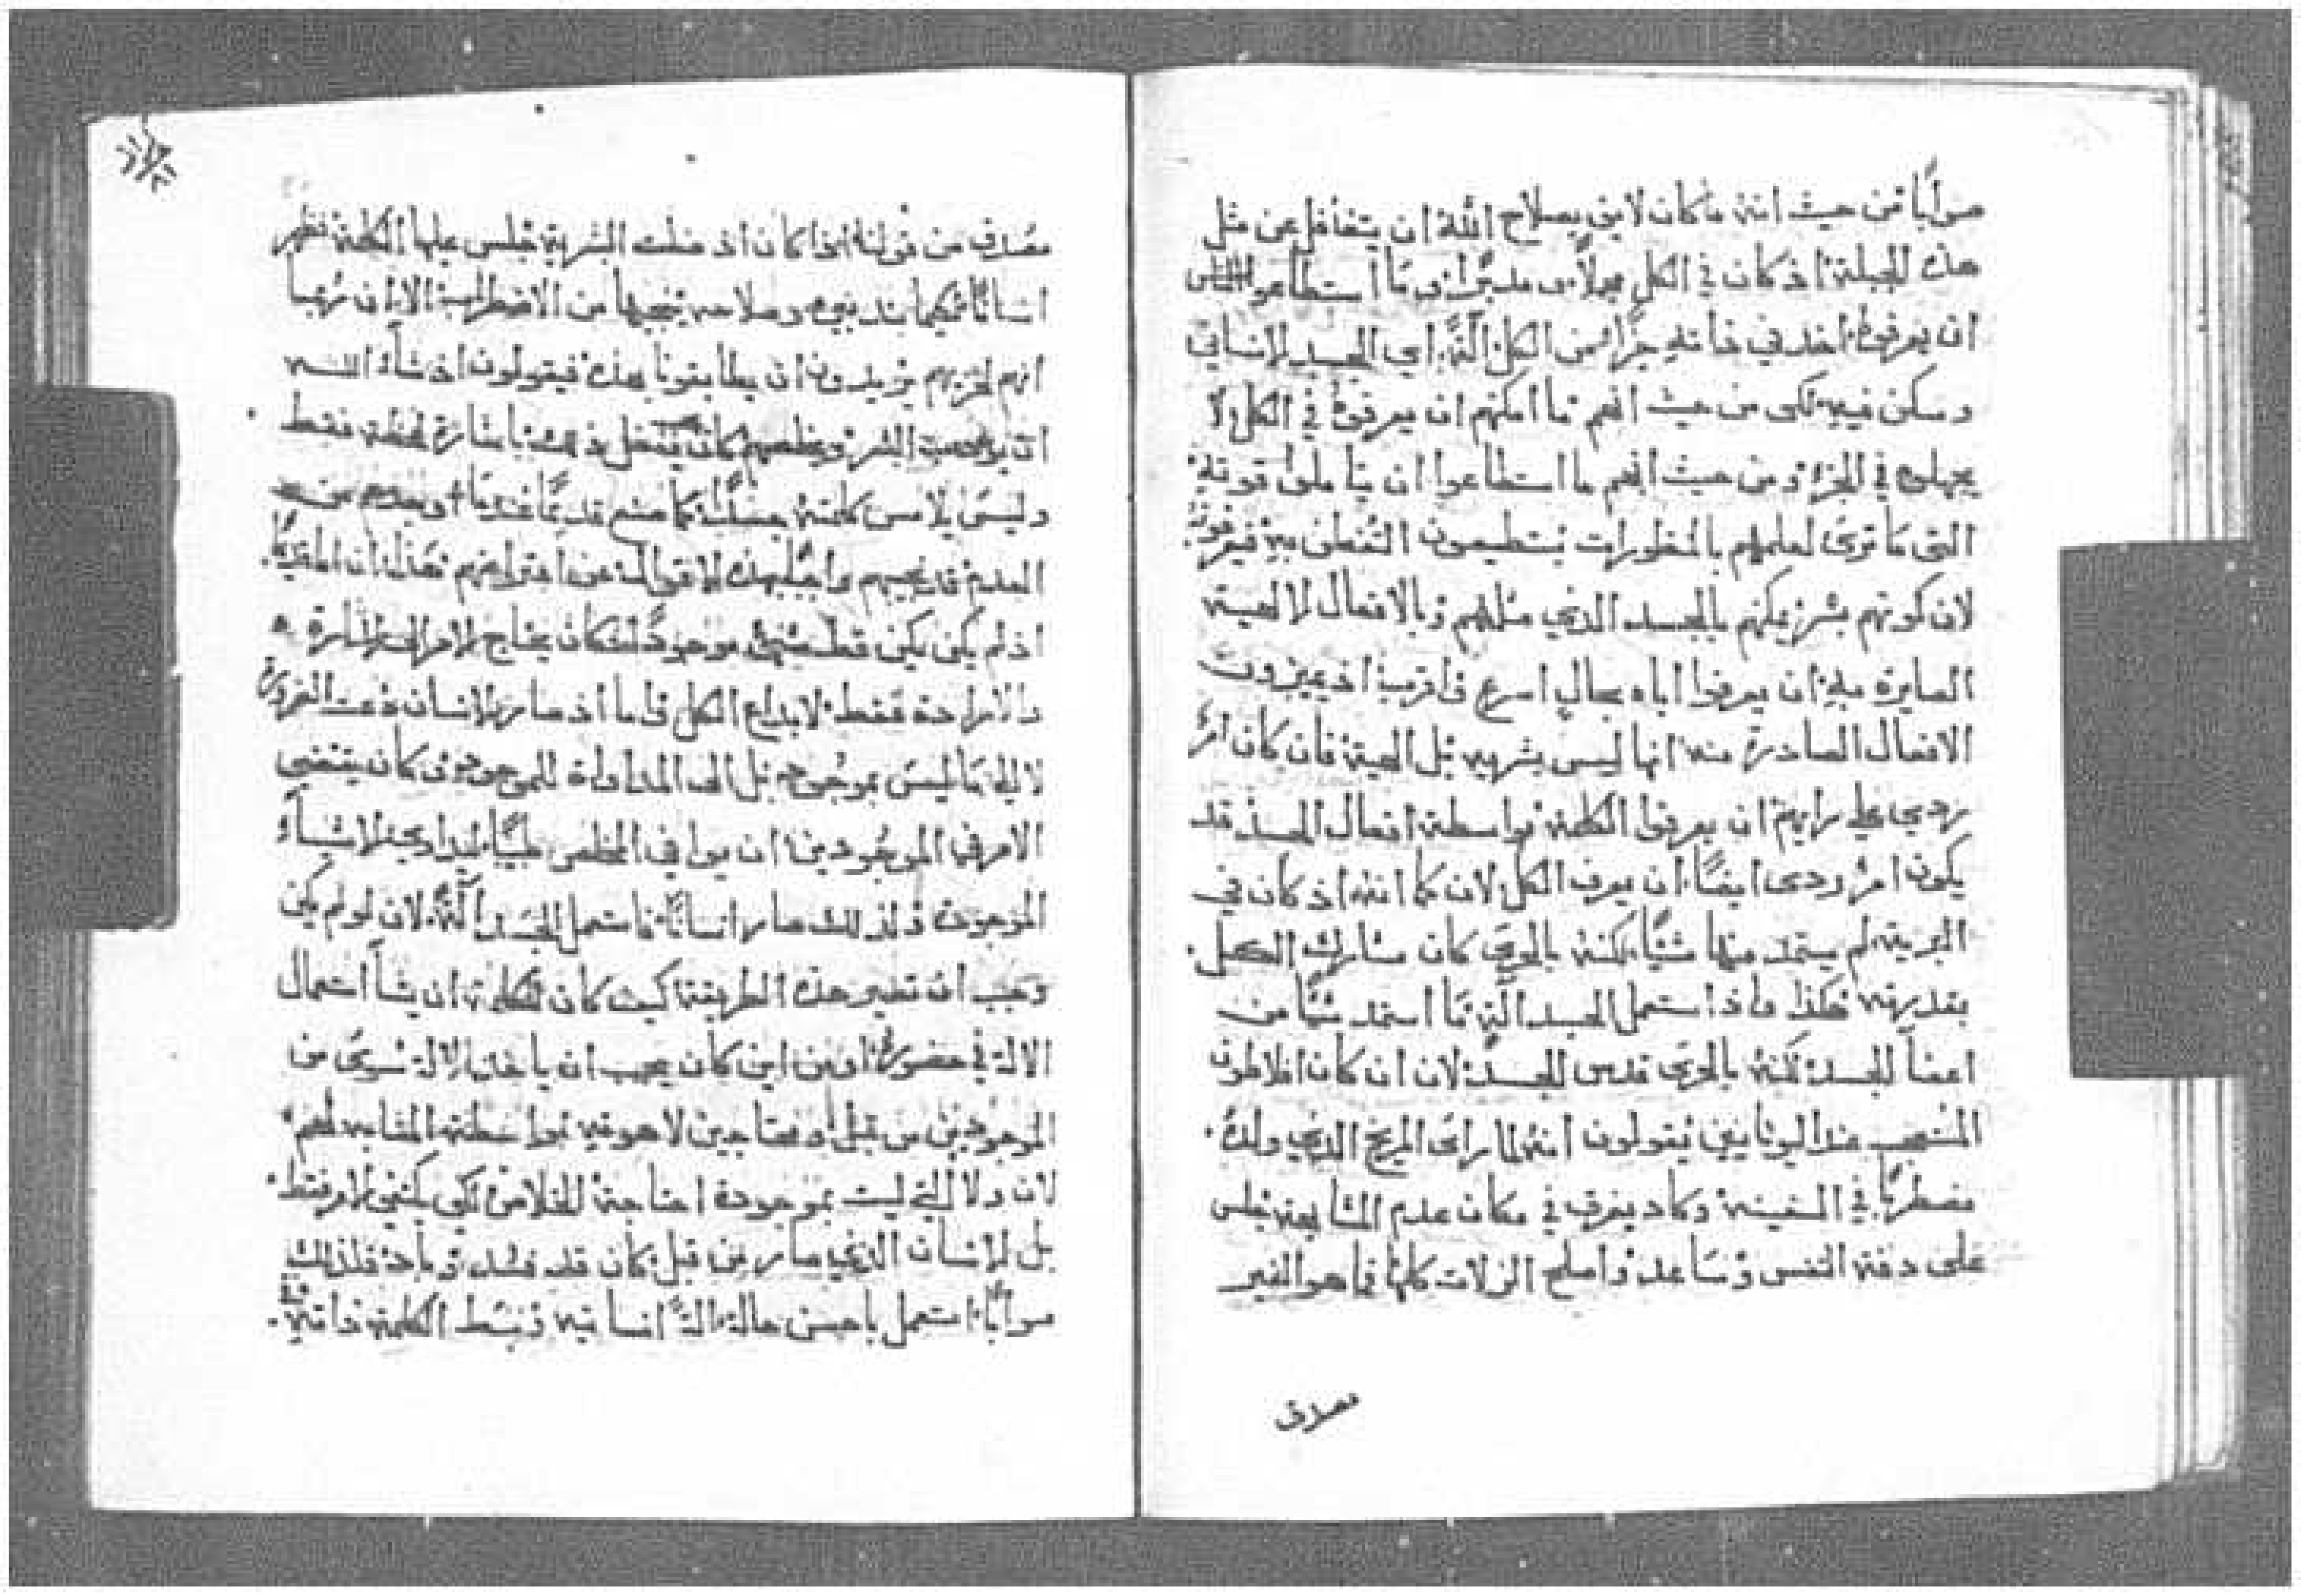 صوابًا من حيث انه ما كان لايق بصلاح الله ان يتغافل عن مثل
هذه الجبلة اذ كان في الكل
ان يعرفوه اخذ في ذاته جزا من الكل آلةً اي الجسد الانساني
وسكن فيه لكى من حيث انهم ما امكنهم ان يعرفوه في الكل لا
يجهلوه في الجزء ومن حيث انهم ما استطاعوا ان يتاملوا قوته
التى ما ترى لعلهم بالمنظورات يستطيعون
لان كونهم بشر يمكنهم بالجسد الذي مثلهم وبالافعال الالهية
الصايرة به ان يعرفوا اباه بحالٍ اسرع واقرب اذ يميزون
الافعال الصادرة منه انها ليس بشريه بل الهية فان كان امرٌ
ردي على رايهم ان يعرفوا الكلمة بواسطة افعال الجسد قد
يكون امر ردى ايضًا ان يعرف الكل لان كما انه اذ كان في
البرية لم يستمد منها شيًا لكنه بالحرى كان مشارك الكل
بقدرته هكذا واذا استعمل الجسد آلةً ما استمد شيًا من
اعضا الجسد لكنه بالحرى قدس الجسد لان ان كان افلاطون
المتعجب عند اليونانيين يقولون انه لما راى المريخ الذي ولده
مضطربًا في السفينة وكاد يغرق في مكان عدم المشابهة جلس
على دفة النفس وساعد واصلح الزلات كلها فما هو الغير
مصدق
مصدق من قولنا اذا كان اذ ضلت البشرية جلس عليها الكلمة وظهر
انسانًا لكيما بتدبيره وصلاحه ينجيها من الاضطراب الا ان ربما
انهم لخزيهم يريدون ان يطابقونا بهذه فيقولون اذ شاء الله
ان البشر ويخلصهم كان يفعل ذلك باشارة لحظة فقط
وليس يلامس كلمته جسدًا كما صنع قديمًا عندما اوجدهم من
العدم قد نجيبهم
اذ لم يكن يكن قط شيء موجودًا كان يحتاج الامر الى الاشارة
والارادة فقط لابداع الكل واما اذ صار الانسان ودعت الضرورة
لا الى ما ليس بموجود بل الى المداواة للموجود كان يقتضي
الامر في الموجودين ان يوافي المخلص طبيبًا ليداوى الاشياء
الموجودة ولذلك صار انسانًا فاستعمل الجسد آلةً لان لو لم يكن
وجب ان تصير هذه الطريقة كيف كان للكلمة ان يشأ استعمال
الالة في حضوره او من اين كان يجب ان ياخذ الالة سوى من
الموجودين من قبل ومحتاجين لاهوته بواسطة المشابه لهم
لان ولا التي ليست بموجودة احتاجت الخلاص لكى يكتفي الامر فقط
بل الانسان الذي صار من قبل كان قد فسد وباد فلذلك
صوابًا استعمل باحسن حالة الةً انسانيه وبسط الكلمة ذاته